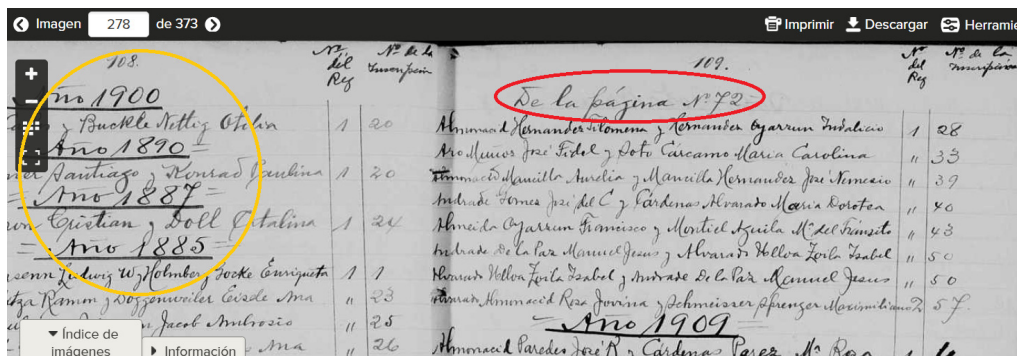 Imagen 278 de 373
Imprimir Descargar Herramie
108. Nº del Reg Nº de la Inscripción
Año 1900
y Buckle Nettig Otelia 1 20
Año 1890
Santiago y Konrad Paulina 1 20
Año 1887
Cristian y Doll Catalina 1 24
Año 1885
Ludwig W y Holmberg Enriqueta 1 1
Ramon y Ana " 23
Jacob Ambrosio " 25
Ana " 26
109. Nº del Reg Nº de la Inscripcion
De la página Nº 72
Almonacid Hernandez Filomena y Hernandez Oyarzun Indalicio 1 28
Aro Muñoz José Fidel y Soto Cárcamo Maria Carolina " 33
Almonacid Mancilla Aurelia y Mancilla Hernandez José Nemesio " 39
Andrade Gomez José del C y Cárdenas Alvarado Maria Dorotea " 40
Almeida Oyarzun Francisco y Montiel Aguila Mª del Tránsito " 43
Andrade De la Paz Manuel Jesus y Alvarado Ulloa Zoila Isabel " 50
Alvarado Ulloa Zoila Isabel y Andrade De la Paz Manuel Jesus " 50
Alvarado Almonacid Rosa Jovina y Schmeisser Sprenger Maximiliano 2 57.
Año 1909
Almonacid Paredes José R y Cárdenas Perez Mª Rosa
Índice de imágenes
Información